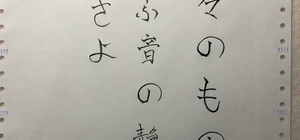 々のもの
ふ音の静
さよ